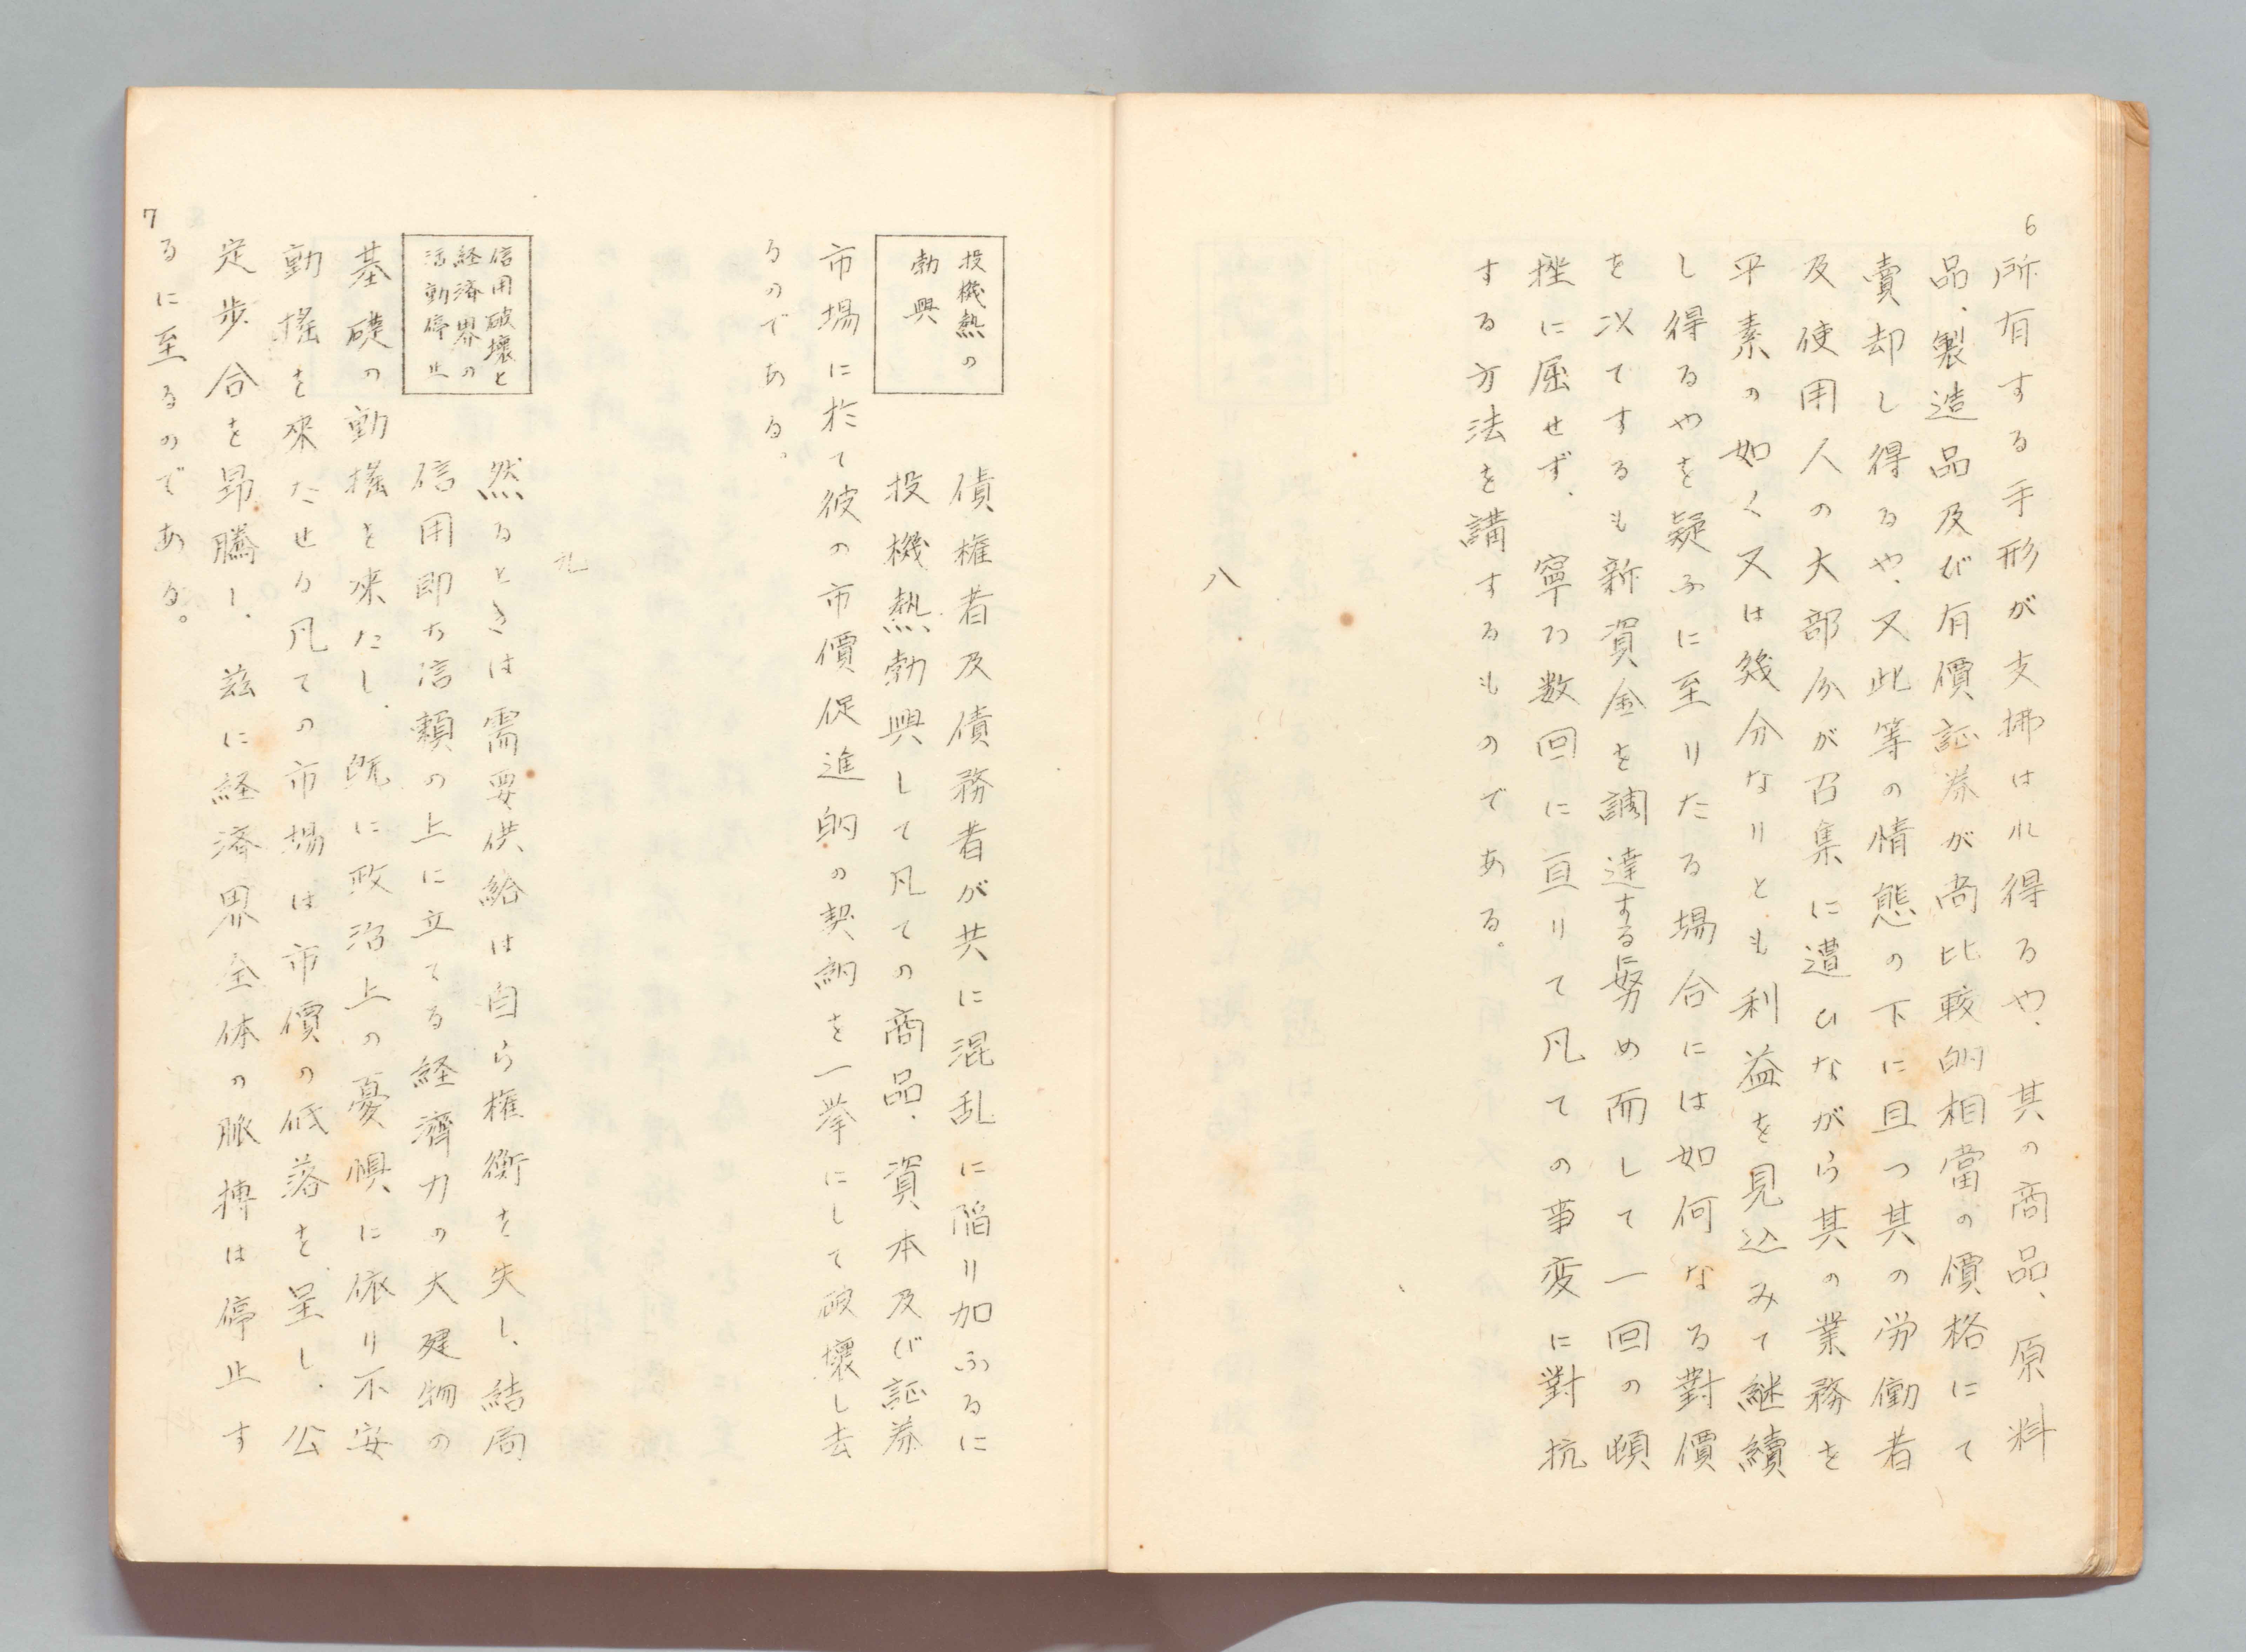 6
所有する手形が支拂はれ得るや、其の商品、原料
品、製造品及び有價証券が尚比較的相當の價格にて
賣却し得るや、又此等の情態の下に且つ其の労働者
及使用人の大部分が召集に遭ひながら其の業務を
平素の如く又は幾分なりとも利益を見込みて継續
し得るやを疑ふに至りたる場合には如何なる對價
を以てするも新資金を調達するに努め而して一回の頓
挫に屈せず、寧ろ数回に亘りて凡ての事変に對抗
する方法を講するものである。
八
投機熱の
勃興
債権者及債務者が共に混乱に陥り加ふるに
投機熱勃興して凡ての商品、資本及び証券
市場に於て彼の市價促進的の契約を一挙にして破壊し去
るのである。
九
信用破壊と
経済界の
活動停止
然るときは需要供給は自ら権衡を失し、結局
信用即ち信頼の上に立てる経濟力の大建物の
基礎の動揺を来たし、既に政治上の憂惧に依り不安
動揺を来たせる凡ての市場は市價の低落を呈し、公
定歩合を昻騰し、茲に経済界全体の脈搏は停止す
7
るに至るのである。